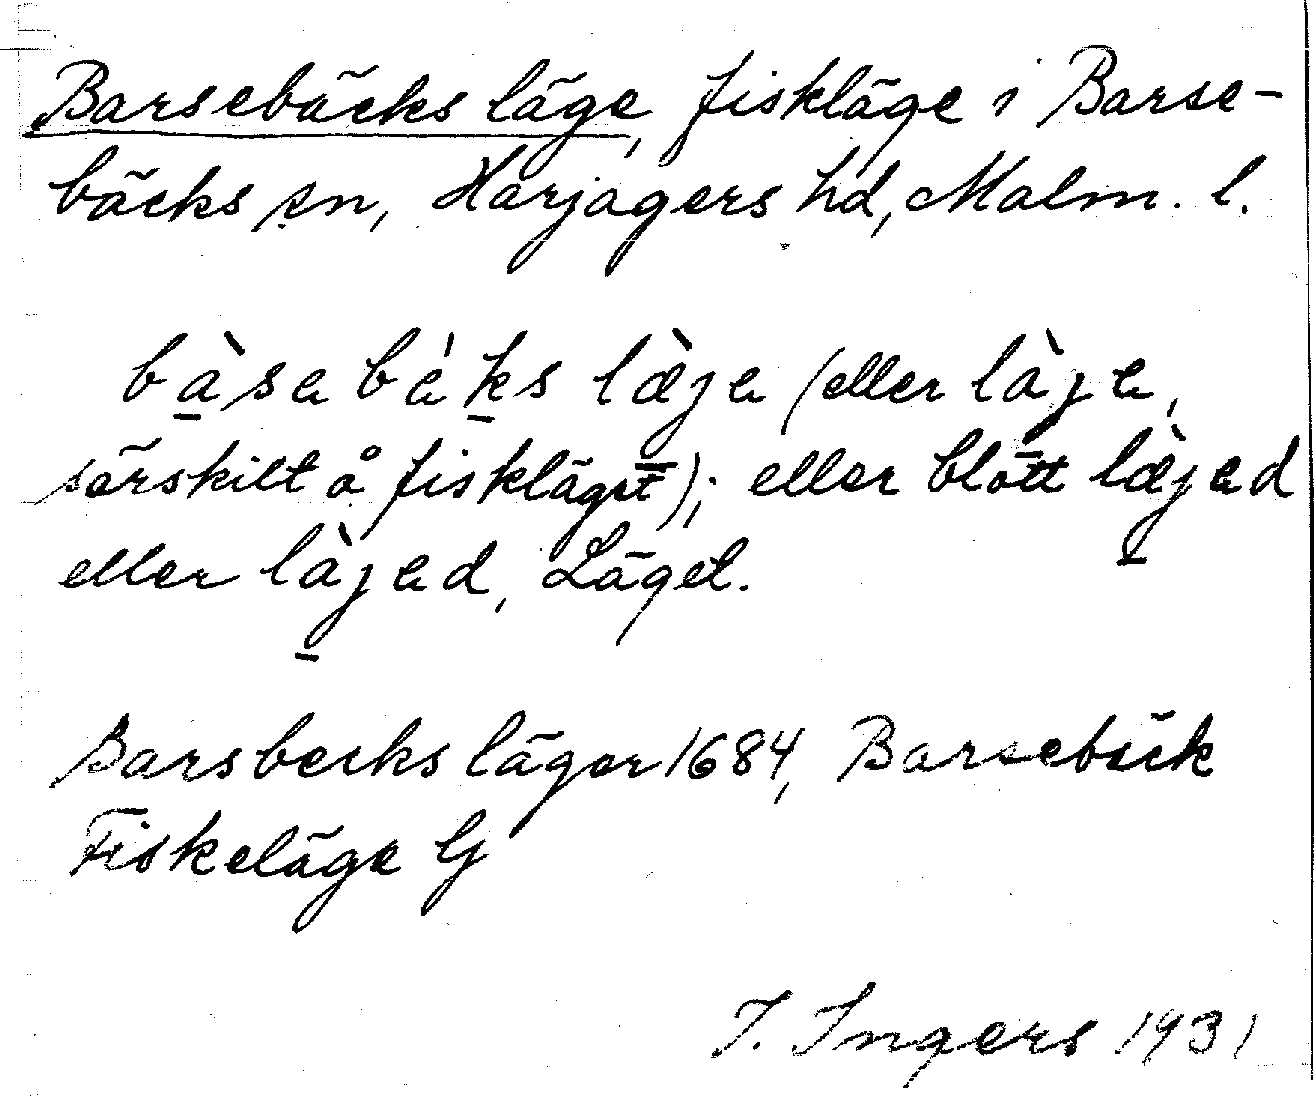 Barsebäcks läge, fiskläge i Barse-
bäcks sn, Harjagers hd, Malm. l.
bàsa bák̠s læ̀ja (eller làja,
särskilt å fiskläget); eller blott læ̀jad
eller làjad, Läget.
Barsbecks läger 1684, Barsebäck
Fiskeläge G
I. Ingers 1931